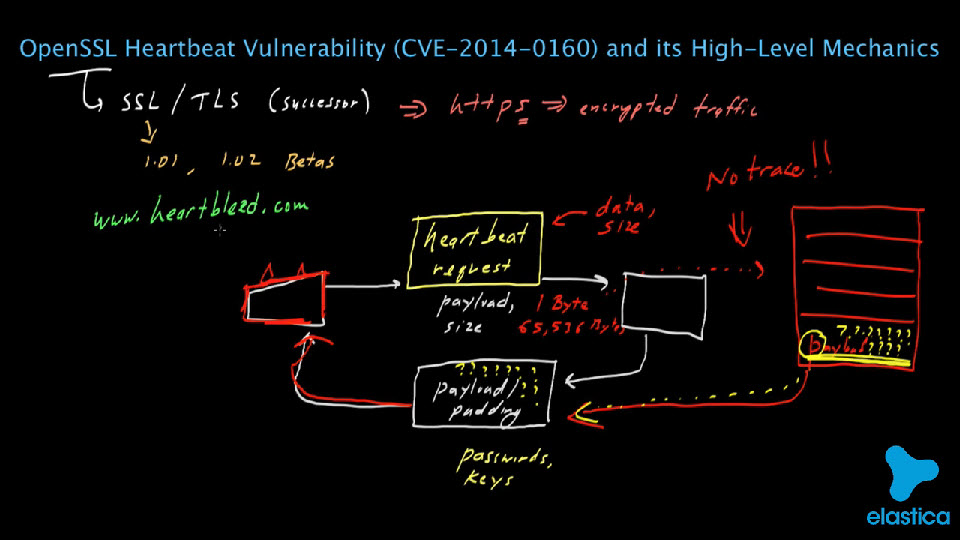 OpenSSL Heartbeat Vulnerability (CVE-2014-0160) and its High-Level Mechanics
SSL / TLS (successor) ⇒ https ⇒ encrypted traffic
1.01, 1.02 Betas
No trace!!
www.heartbleed.com
data,
size
heartbeat
request
payload,
size
1 Byte
65,536 Bytes
?.??????
payload????
??????
payload/??
padding ?
passwords,
keys
elastica